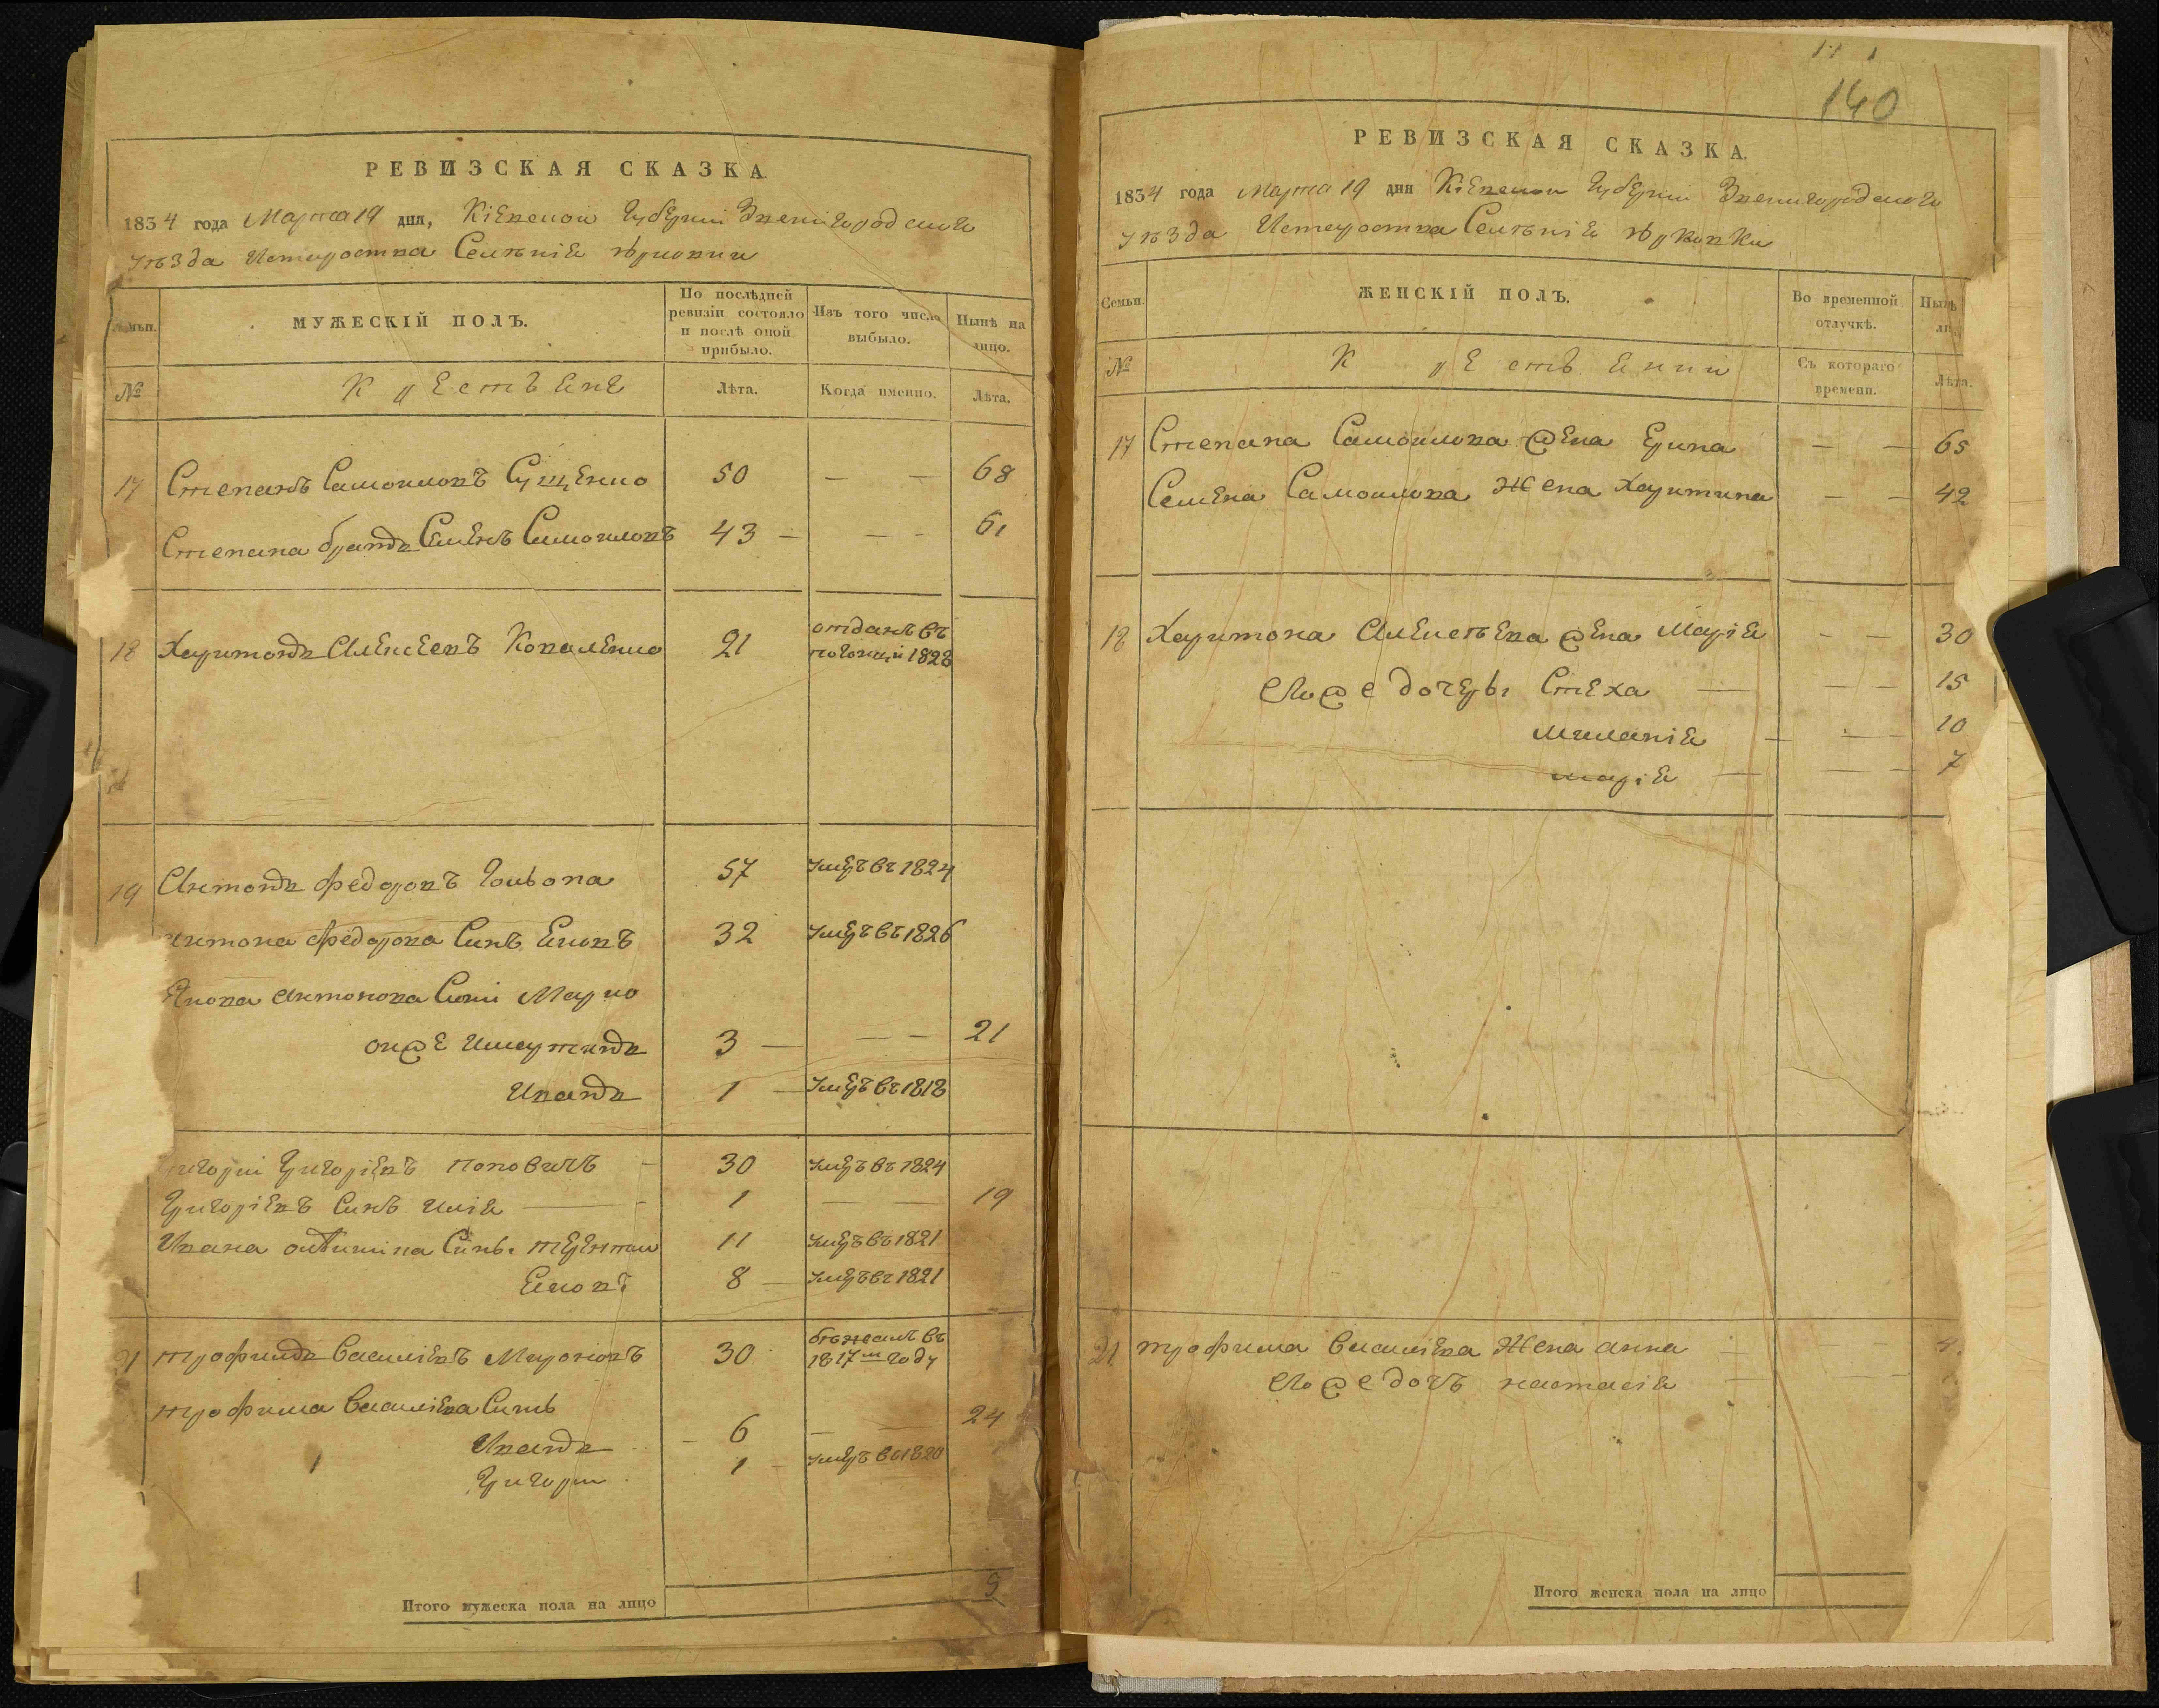 РЕВИЗСКАЯ СКАЗКА.
1834 года Марта 19 дня, Кіевской Губерніи Звенигородскаго
уѣзда Селѣнія
Семьи. МУЖЕСКІЙ ПОЛЪ. По послѣдней ревизіи состояло и послѣ оной прибыло. Изъ того число выбыло. Нынѣ на лицо.
№ Крестьяне Лѣта. Когда именно. Лѣта.
17 Степанъ Самоиловъ Сущенко 50 — — 68
Степана братъ Семенъ Самоиловъ 43 — — - 61
18 Харитонъ Алексеевъ Коваленко 21 отданъ въ 1828
19 Антонъ Федоровъ 57 умеръ въ 1824
Антона Федорова Синъ Яковъ 32 умеръ въ 1826
Якова Антонова Сини Марко
онже 3 — — — 21
Иванъ 1 — умеръ въ 1818
Григоріевъ Поповичъ — 30 умеръ въ 1824
Григоріевъ Синъ Иліа — 1 — 19
Ивана Сины Терентий 11 умеръ въ 1821
Яковъ 8 — умеръ въ 1821
21 Трофимъ Василіевъ 30 бѣжалъ въ 1817м году
Трофима Василіева Синъ
Иванъ 6 — — 24
Григори 1 умеръ въ 1820
Итого мужеска пола на лицо 5
140
РЕВИЗСКАЯ СКАЗКА.
1834 года Марта 19 дня Кіевской Губерніи Звенигородскаго
уѣзда Селѣніе
Семьи. ЖЕНСКІЙ ПОЛЪ. Во временной отлучкѣ. Нынѣ
№ Крестьянки Съ котораго времени. Лѣта.
17 Степана Самоилова жена Ерина — — 65
Семена Самоилова Жена Харитина — — 42
18 Харитона Алексѣева жена Маріа — — 30
Егоже дочеры Стеха — — — 15
Миланіа — — — 10
Маріа — — — 7
21 Трофима Василіева Жена анна — — —
Егоже дочъ настасіа — — —
Итого женска пола на лицо